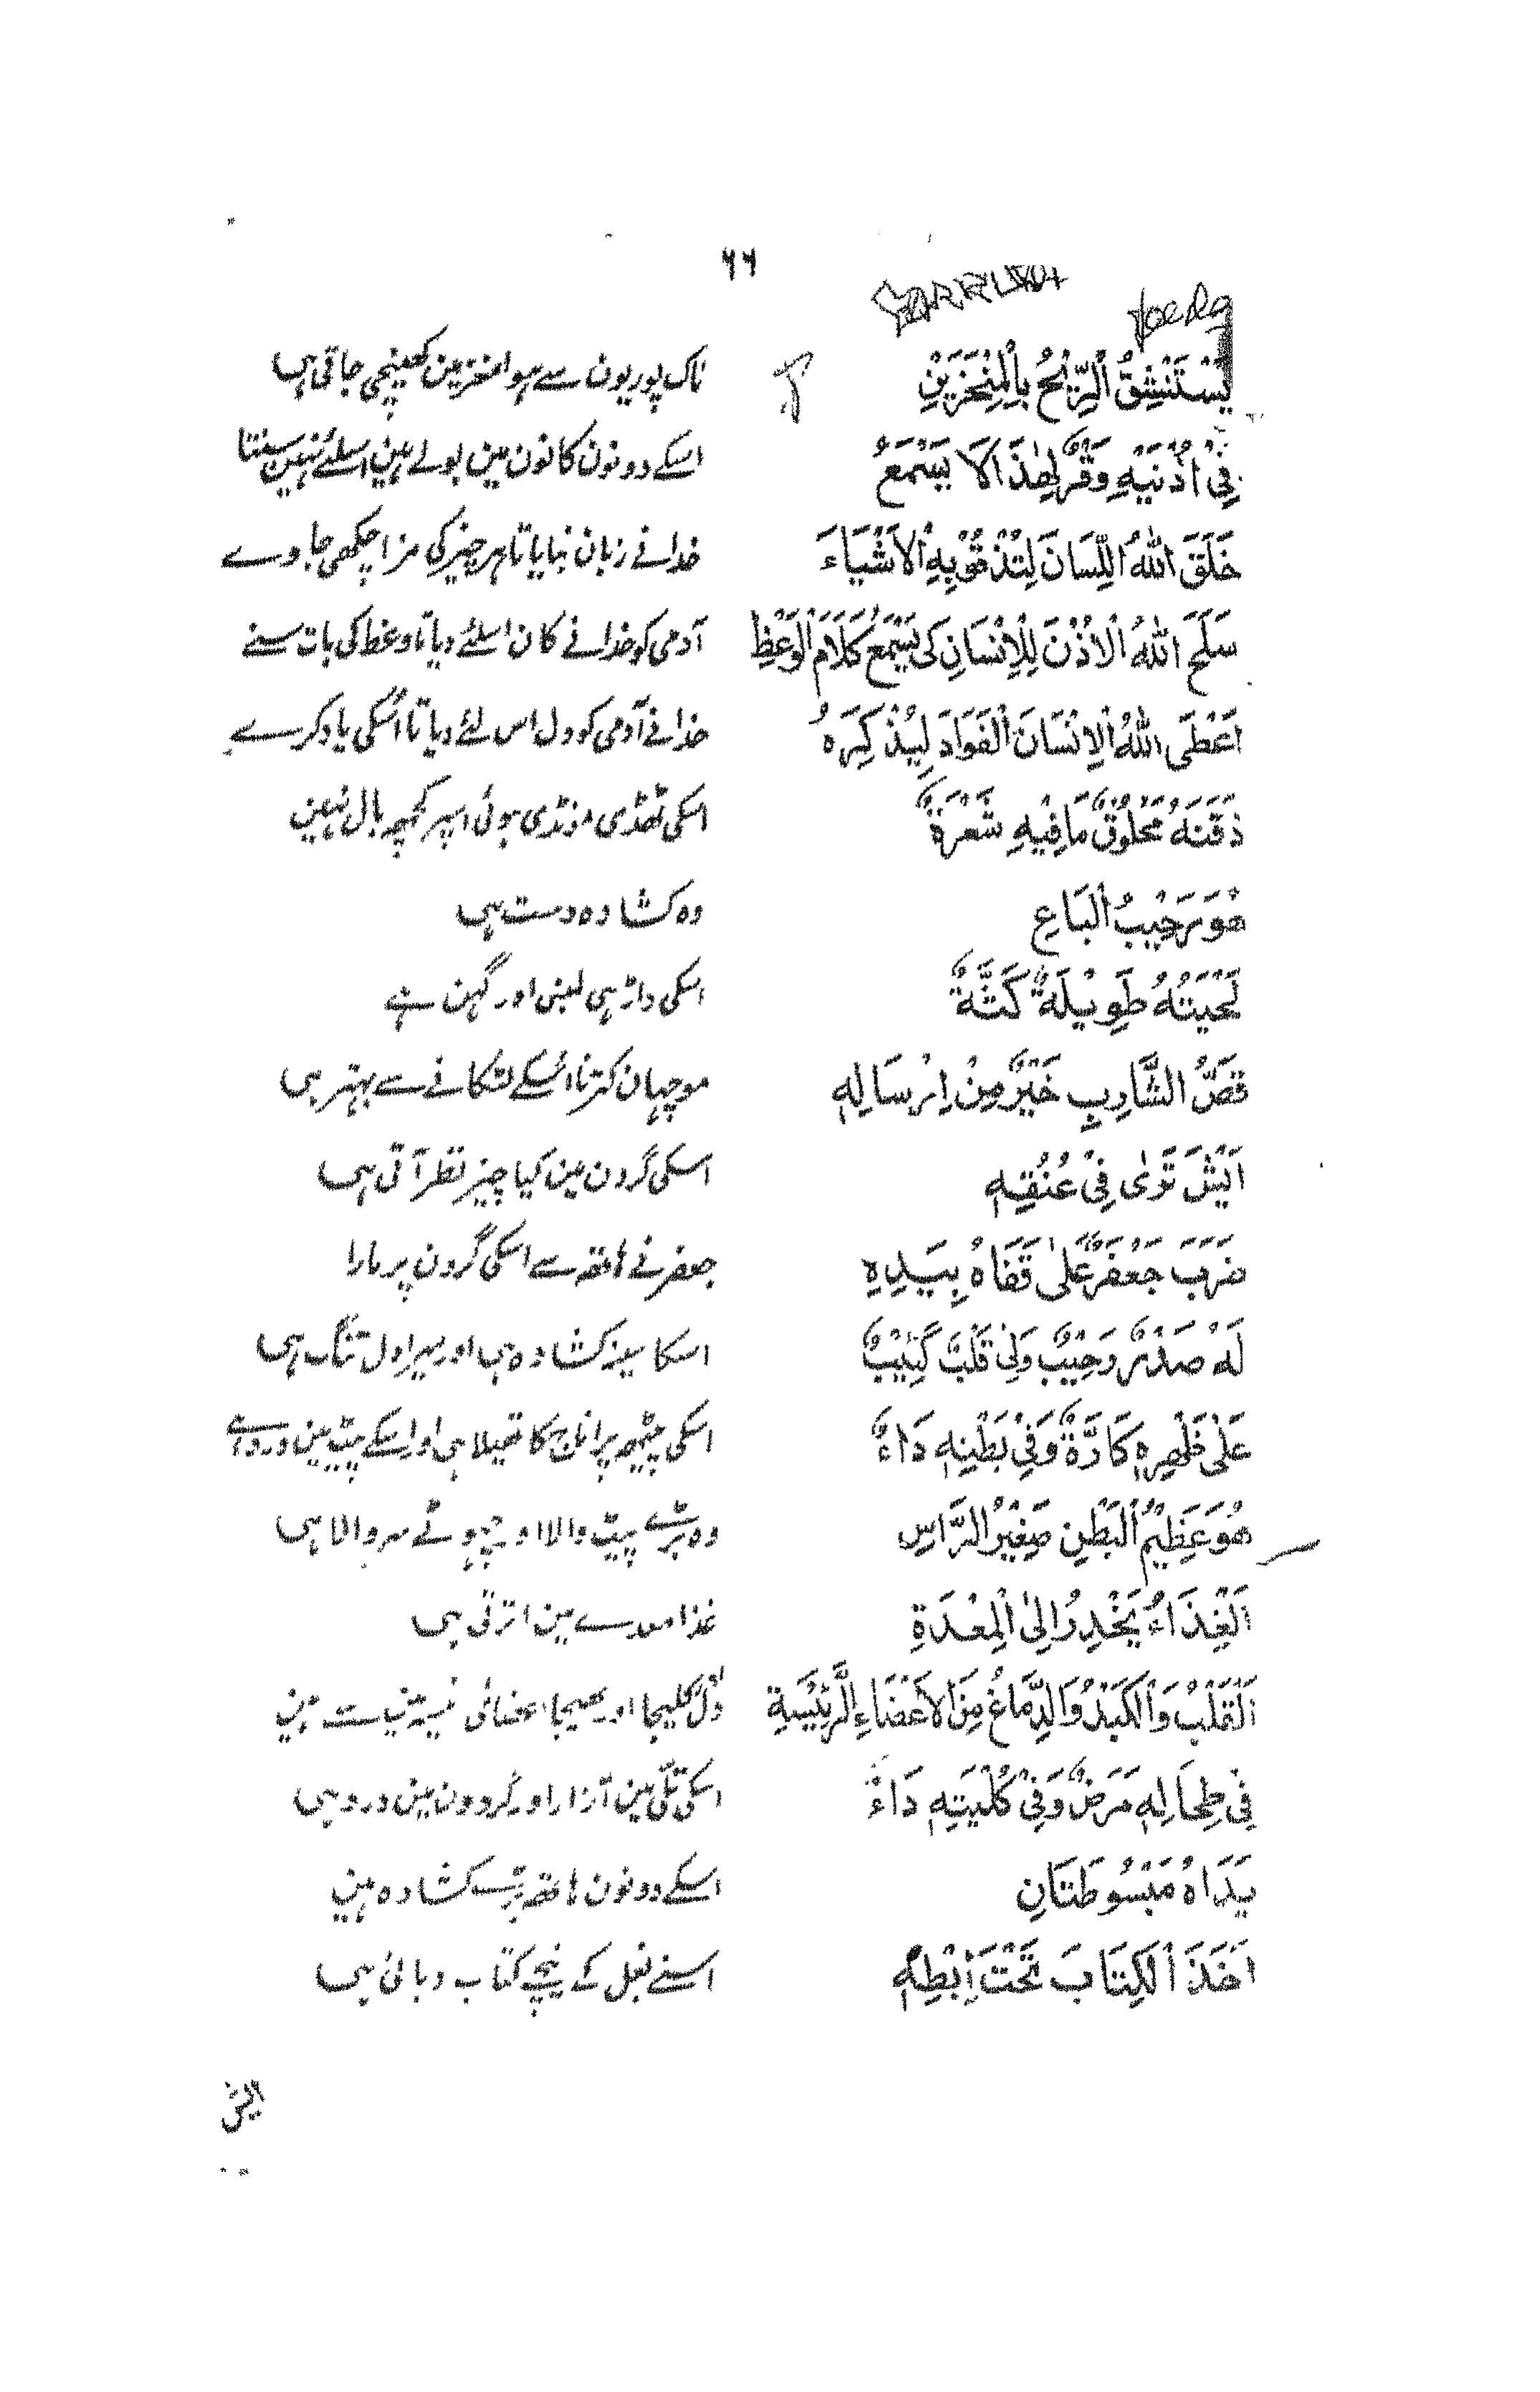 ٦٦
يُسْتَنْشَقُ الرِّيْحُ بِالْمِنْخَرَيْنِ ناک پوریون سے ہوا مغز مین کھینچی جاتی ہی
فِيْ اُذْنَيْهِ وَقْرٌ لِهٰذَا لَا يَسْمَعُ اسکے دونون کانون مین بولے ہین اسلئے نہین سنتا
خَلَقَ اللهُ اللِّسَانَ لِتُذْقُوْ بِهِ الْاَشْيَاءَ خدا نے زبان بنایا تا ہر چیز کی مزا چکھی جاوے
سَلَحَ اللهُ الْاُذْنَ لِلْاِنْسَانِ كَى يَسْمَعُ كَلَامَ الْوَعْظِ آدمی کو خدا نے کان اسلئے دیا تا وعظ کی بات سنے
اَعْطَى اللهُ الْاِنْسَانَ الْفَوَادَ لِيُذْكِرَهُ خدا نے آدمی کو دل اس لئے دیا تا اُسکی یاد کرے
ذَقَنَهُ مَحْلُوْقٌ مَا فِيْهِ شَعْرَةٌ اسکی ٹھڈی مونڈی ہوئی اسپر کچھ بال نہین
هُوَ رَحِيْبُ الْبَاعِ وہ کشادہ دست ہی
لَحْيَتُهُ طَوِيْلَةٌ كَثَّةٌ اسکی داڑہی لنبی اور گہن ہے
قَصُّ الشَّارِبِ خَيْرٌ مِنْ اِرْسَالِهٖ موچہان کترنا اُسکے لٹکانے سے بہتر ہی
اَيْشَ تَرٰى فِيْ عُنُقِهٖ اسکی گردن مین کیا چیز نظر آتی ہی
ضَرَبَ جَعْفَرٌ عَلٰى قَفَاهُ بِيَدِهِ جعفر نے ہاتھ سے اسکی گردن پر مارا
لَهُ صَدْرٌ رَحِيْبٌ وَلِىْ قَلْبٌ كَئِيْبٌ اسکا سینہ کشادہ ہی اور میرا دل تنگ ہی
عَلٰى ظَهْرِهٖ كَارَّةٌ وَفِيْ بَطْنِهٖ دَاءٌ اسکی پیٹھ پر اناج کا تھیلا ہی اور اسکے پیٹ مین درد ہے
هُوَ عَظِيْمُ الْبَطْنِ صَغِيْرُ الرَّاسِ وہ بڑے پیٹ والا اور چہوٹے سر والا ہی
اَلْغِذَاءُ يَنْحَدِرُ اِلَى الْمِعْدَةِ غذا معدے مین اترتی ہی
اَلْقَلْبُ وَالْكَبَدُ وَالدِّمَاغُ مِنَ الْاَعْضَاءِ الرَّئِيْسِيَةِ دل کلیجا اور بھیجا اعضائی ہین
فِيْ طِحَالِهٖ مَرَضٌ وَفِيْ كُلْيَتِهٖ دَاءٌ اسکی تلّی مین آزار اور گردون مین درد ہی
يَدَاهُ مَبْسُوطَتَانِ اسکے دونون ہاتھ بڑے کشادہ ہین
اَخَذَ الْكِتَابَ تَحْتَ اِبْطِهٖ اسنے بغل کے نیچے کتاب دبائی ہی